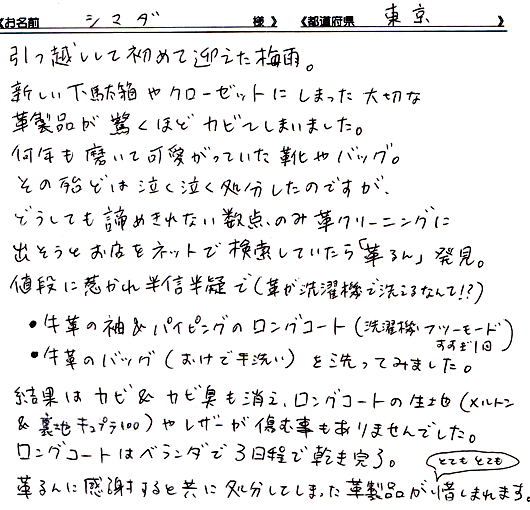 《お名前　シマダ　様》《都道府県　東京　》
引っ越しして初めて迎えた梅雨。
新しい下駄箱やクローゼットにしまった大切な
革製品が驚くほどカビてしまいました。
何年も磨いて可愛がっていた靴やバッグ。
その殆どは泣く泣く処分したのですが、
どうしても諦めきれない数点のみ革クリーニングに
出そうとお店をネットで検索していたら「革るん」発見。
値段に惹かれ半信半疑で（革が洗濯機で洗えるなんて!?）
・牛革の袖＆パイピングのロングコート（洗濯機・フツーモード すすぎ1回）
・牛革のバッグ（おけで手洗い）を洗ってみました。
結果はカビ＆カビ臭も消え、ロングコートの生地（メルトン
＆裏地キュプラ100）やレザーが傷む事もありませんでした。
ロングコートはベランダで3日程で乾き完了。
とてもとても
革るんに感謝すると共に処分してしまった革製品が惜しまれます。